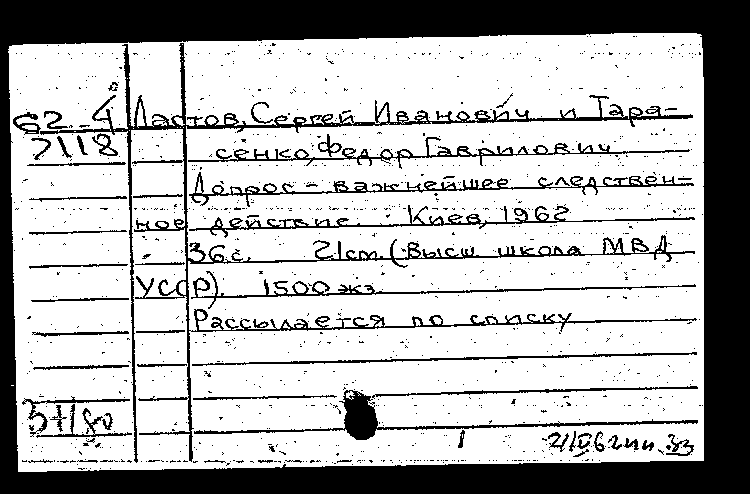 62-4 Ластов, Сергей Иванович и Тара-
7118 сенко, Федор Гаврилович
Допрос - важнейшее следствен-
ное действие. Киев, 1962
36 с. 21 cm. (Высш школа МВД
УССР). 1500 экз
Рассылается по списку
1